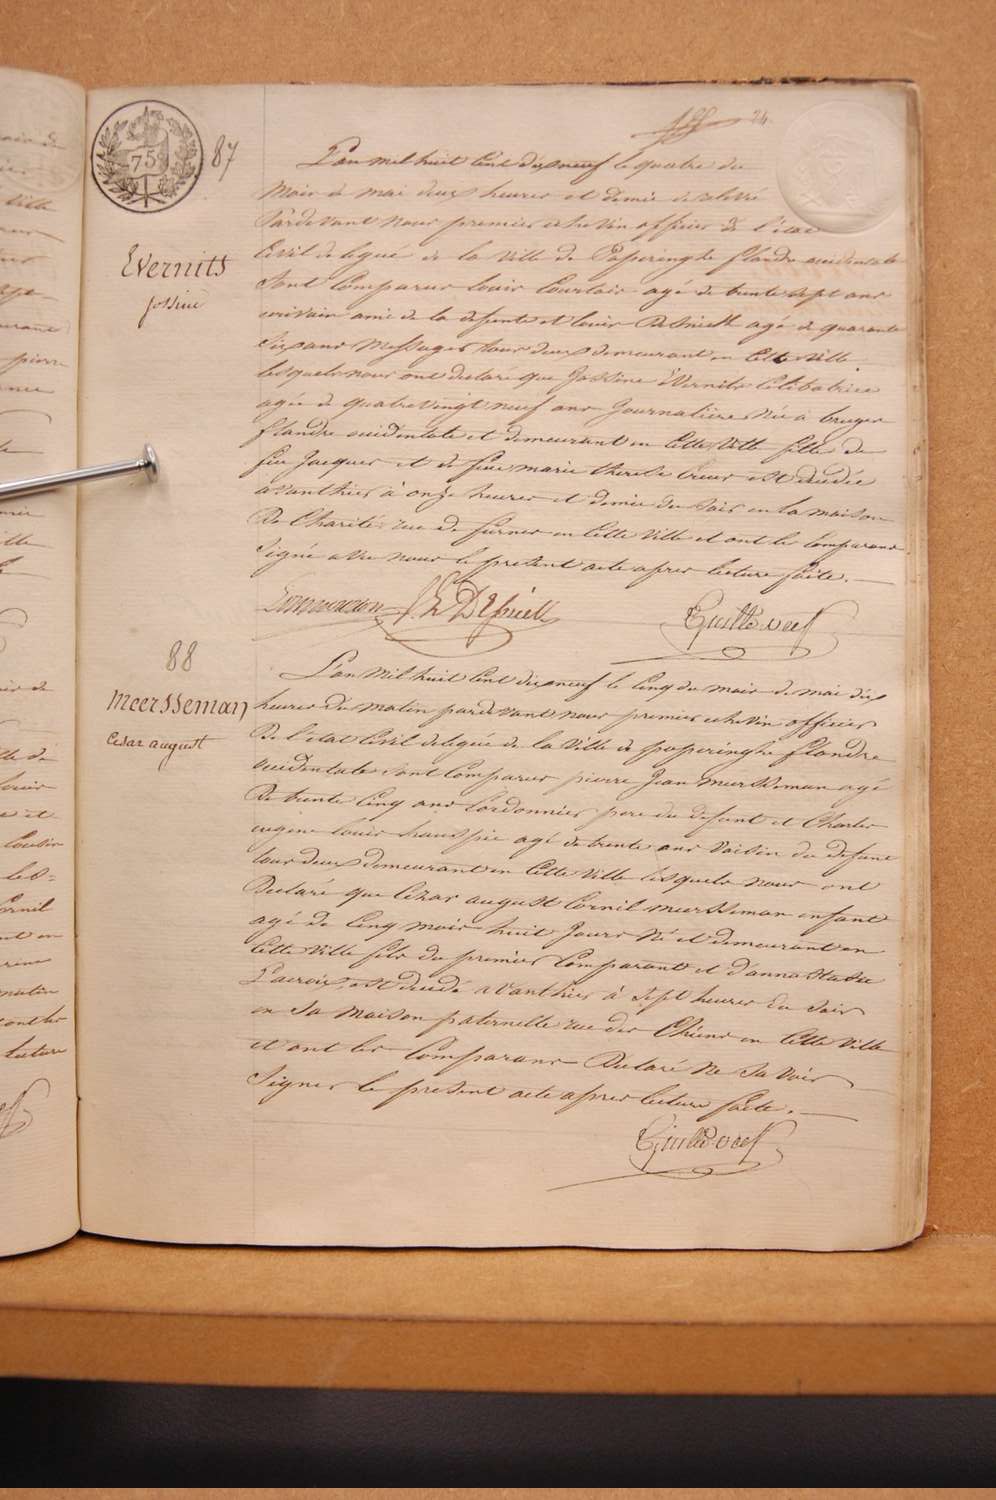 24
75
87
L'an mil huit cent dix neuf le quatre du
Evernits
jossine
mois de mai deux heures et demie de relevé
Pardevant nous premier echevin officier de l'état
Civil delegué de la ville de Poperinghe flandre occidentale
Sont Comparus louis Courtois agé de trente sept ans
ecrivain ami de la defunte et louis Desnielt agé de quarante
six ans Messager tous deux demeurant en Cette Ville
lesquels nous ont declaré que Jossine Evernits Celibatrice
agée de quatre vingt neuf ans Journaliere Née a bruges
flandre occidentale et demeurant en Cette Ville fille de
feu Jacques et de feue marie therese est décédée
avanthier à onze heures et demie du soir en la maison
De Charité rue de furnes en Cette Ville et ont les Comparans
Signé avec nous le present acte apres lecture faite.
88
Meersseman
Cesar august
L'an Mil huit Cent dix neuf le Cinq du mois de mai dix
heures du matin pardevant nous premier echevin officier
De l'état Civil delegué de la Ville de poperinghe flandre
occidentale sont Comparus pierre Jean meersseman agé
De trente Cinq ans Cordonnier pere du defunt et Charles
eugene louis agé de trente ans Voisin du defunt
tous deux demeurant en Cette Ville lesquels nous ont
Declaré que Cezar august Cornil meersseman enfant
agé de Cinq mois huit Jours Né et demeurant en
Cette Ville fils du premier Comparant et d'anna
Lacroix est décédé avanthier à sept heures du soir
en sa maison paternelle rue des Chiens en Cette Ville
et ont les Comparans Declaré ne savoir
Signer le present acte apres lecture faite.